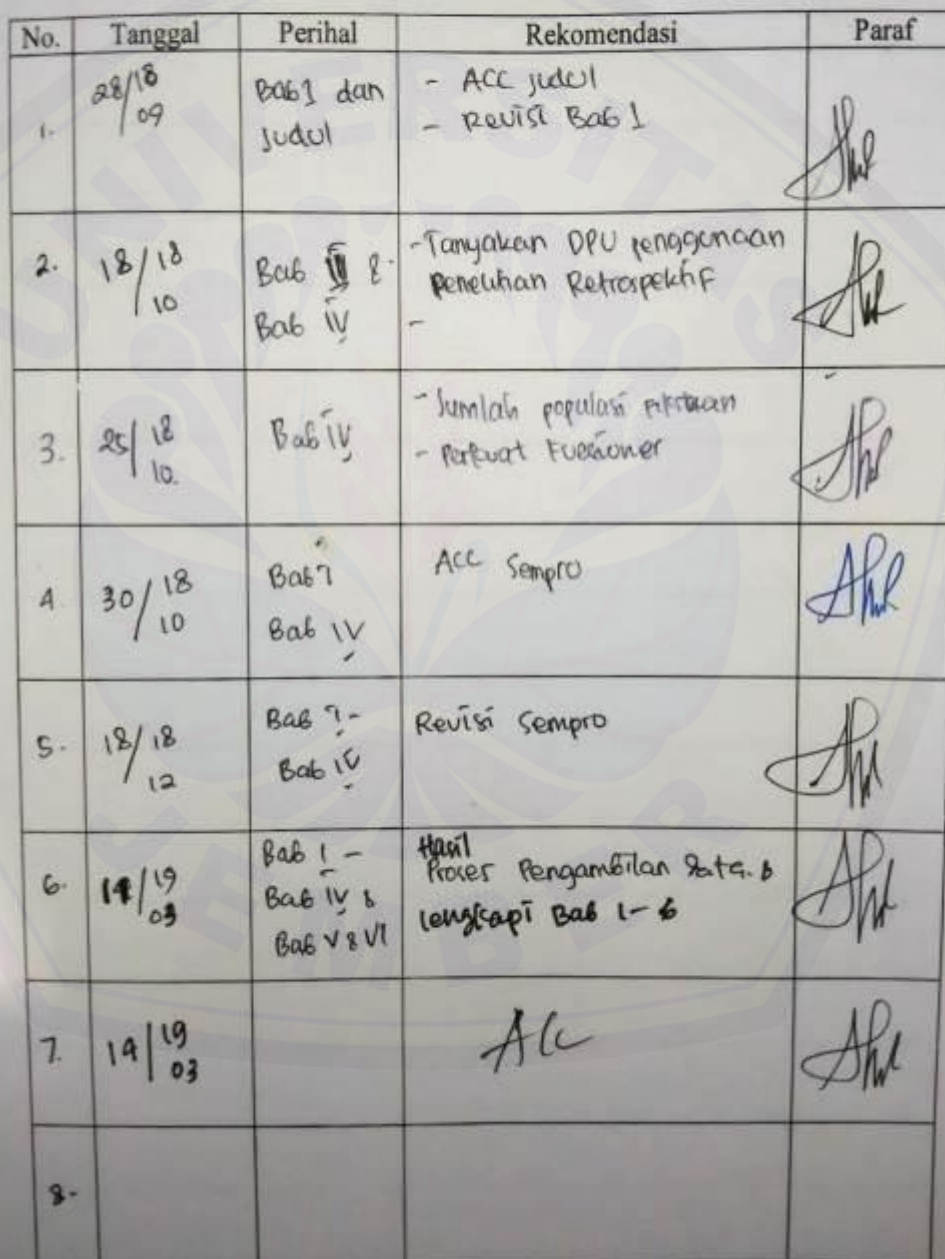 No. Tanggal Perihal Rekomendasi Paraf
1. 28/18 09 Bab 1 dan Judul
- ACC Judul
- Revisi Bab 1
2. 18/18 10 Bab III &
Bab IV
- Tanyakan DPU penggunaan
penelitian Retrospektif
-
3. 25/18 10. Bab IV
- Jumlah populasi
- Perkuat Kuesioner
4 30/18 10 Bab I
Bab IV
ACC Sempro
5. 18/18 12 Bab I -
Bab IV
Revisi Sempro
6. 14/19 03 Bab I -
Bab IV &
Bab V & VI
Hasil
Proses Pengambilan Data. &
lengkapi Bab 1-6
7. 14/19 03 Acc
8.
UNIVERSITAS
JEMBER